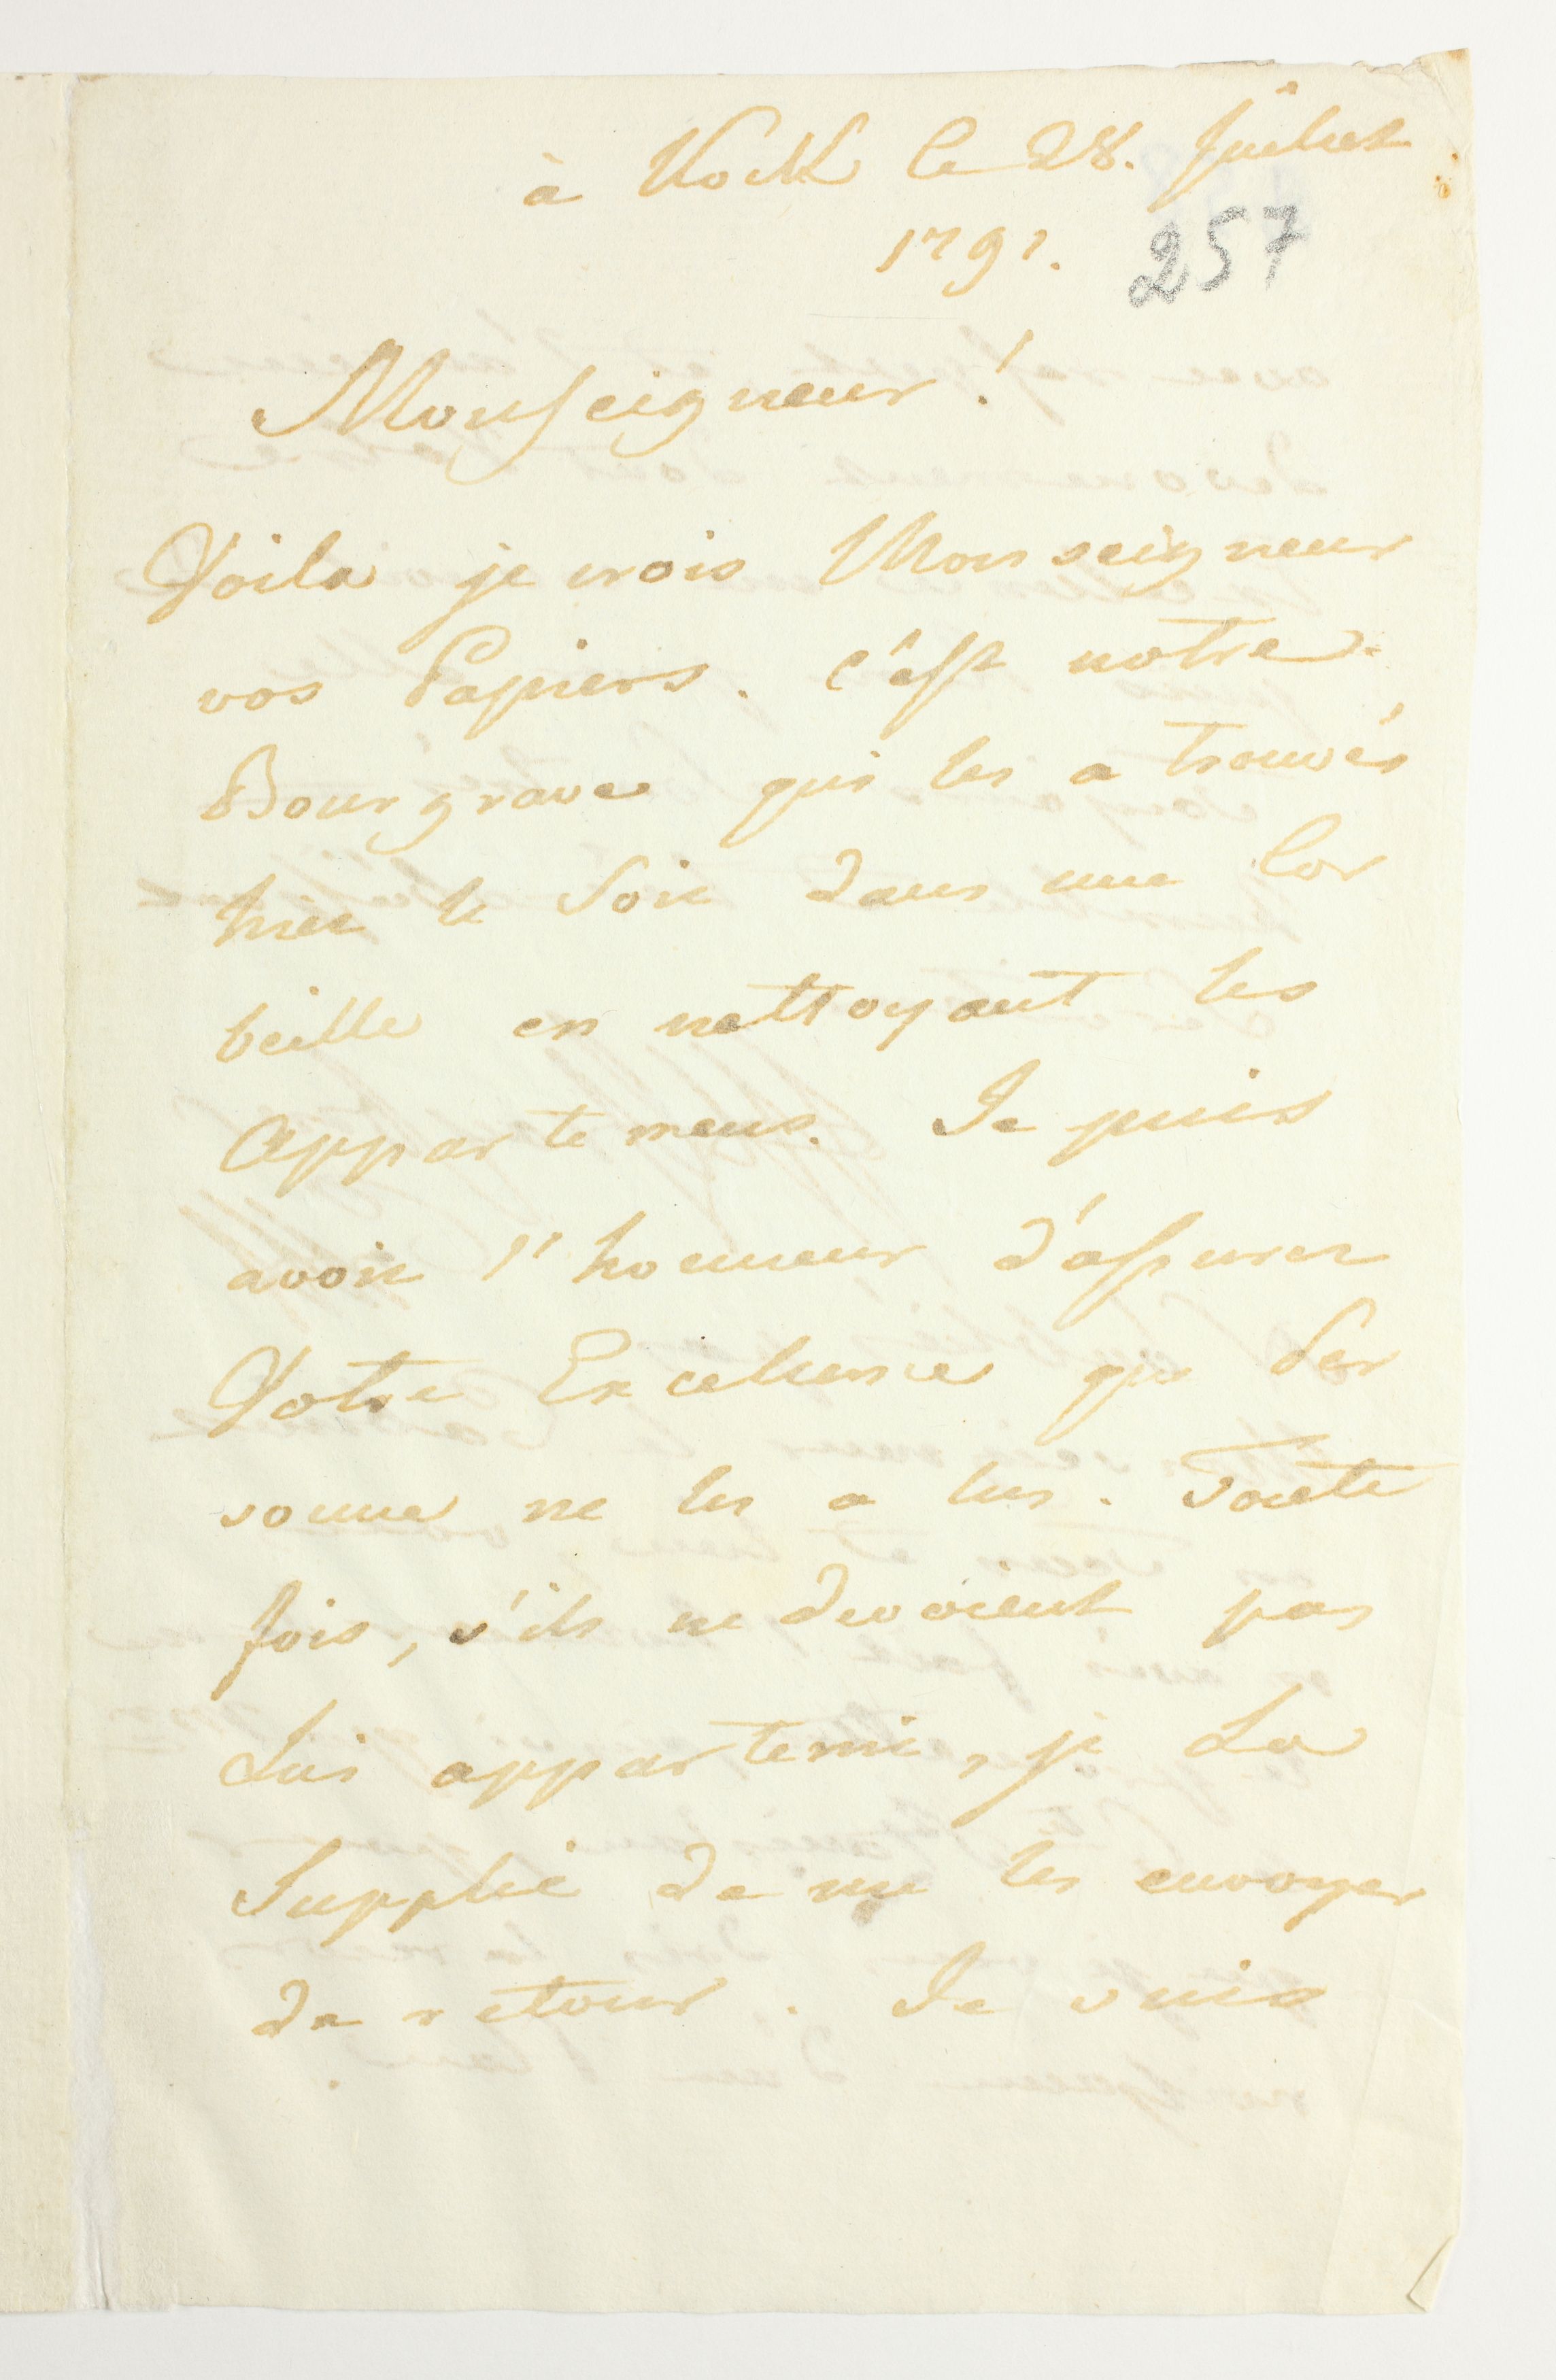 à Kock le 28. Juillet
1791.
257
Monseigneur!
Voila je crois Monseigneur
vos Papiers. C'est notre
Bourgrave qui les a trouvés
hier le Soir dans une Cor
beille en nettoyant les
appartemens. Je puis
avoir l'honneur d'assurer
Votre Excellence que Per
sonne ne les a lus. Toute
fois, s'ils ne devoient pas
Lui appartenir, je La
Supplie de me les envoyer
de retour. Je suis